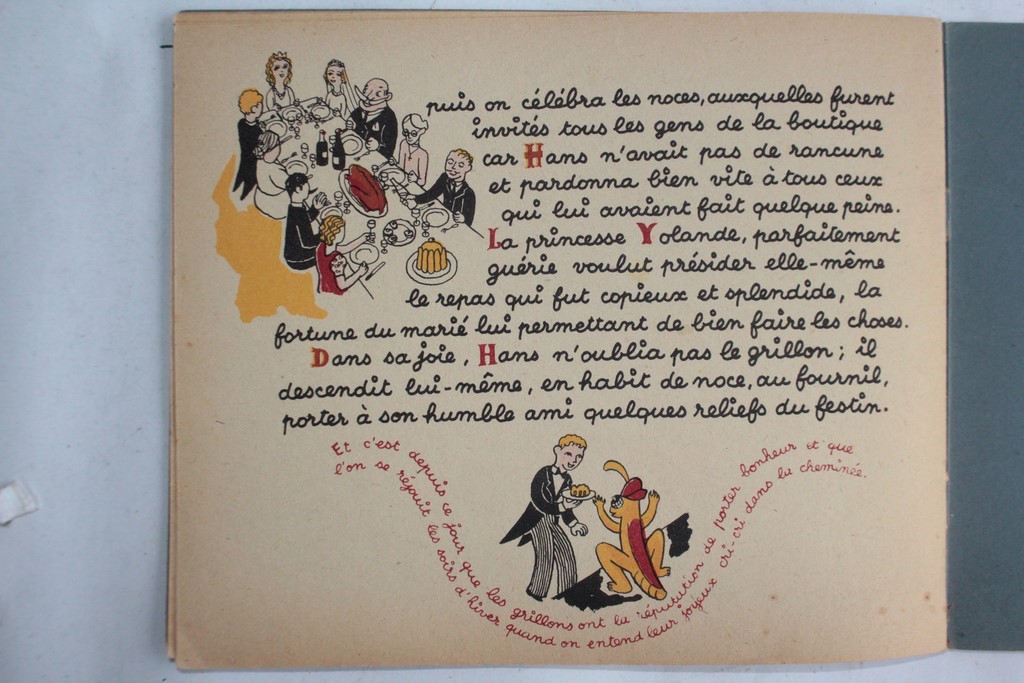 puis on célébra les noces, auxquelles furent
invités tous les gens de la boutique
car Hans n'avait pas de rancune
et pardonna bien vite à tous ceux
qui lui avaient fait quelque peine.
La princesse Yolande, parfaitement
guérie voulut présider elle-même
le repas qui fut copieux et splendide, la
fortune du marié lui permettant de bien faire les choses.
Dans sa joie, Hans n'oublia pas le grillon; il
descendit lui-même, en habit de noce, au fournil,
porter à son humble ami quelques reliefs du festin.
Et c'est depuis ce jour que les grillons ont la réputation de porter bonheur et que
l'on se réjouit les soirs d'hiver quand on entend leur joyeux cri-cri dans la cheminée.